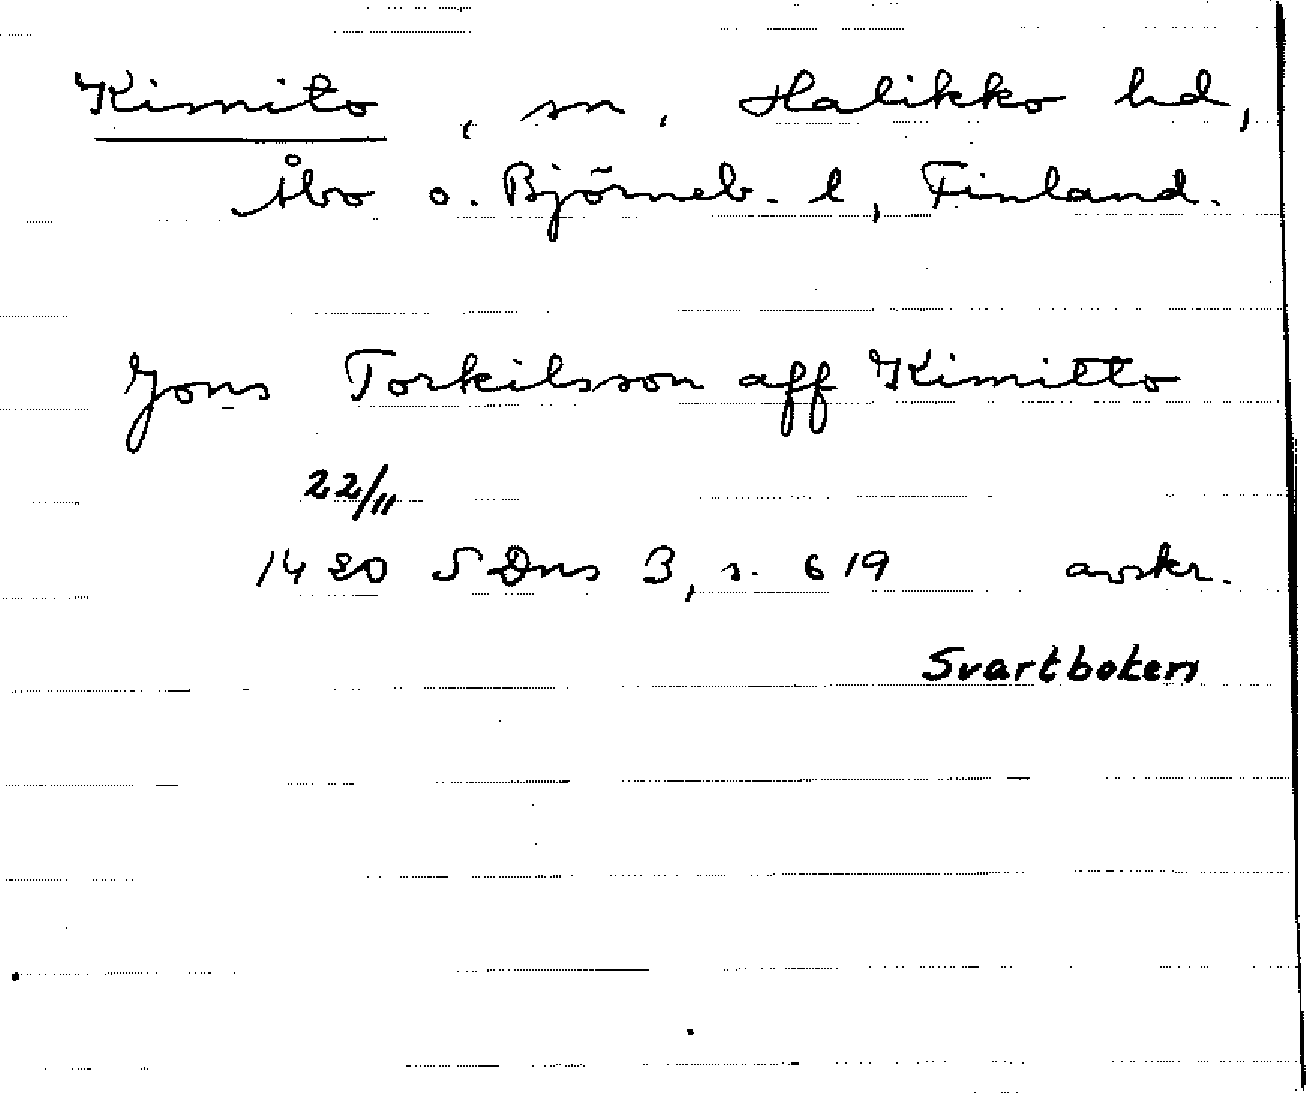 Kimito, sn, Halikko hd,
Åbo o. Björneb. l, Finland.
Jons Torkilsson aff Kimitto
22/11
1420 SDns 3, s. 619 avskr.
Svartboken